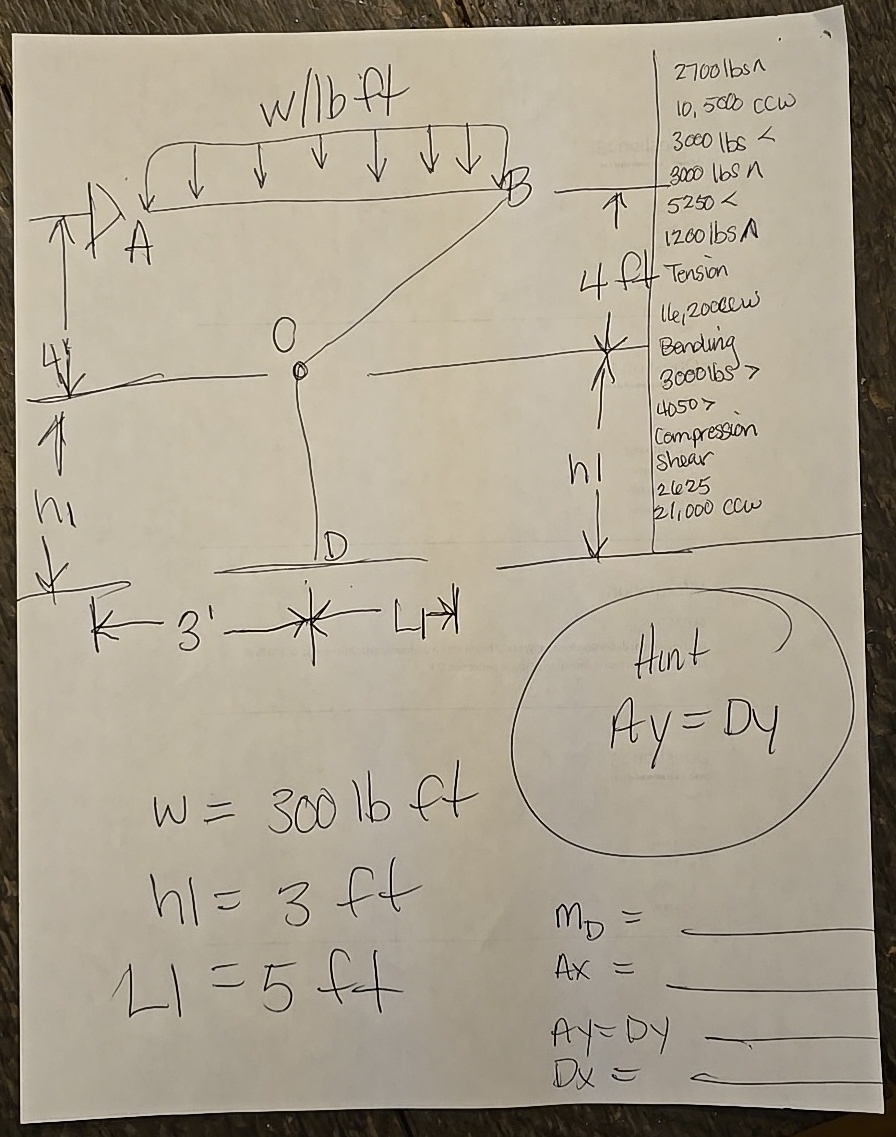 w/lb ft
A
B
4'
4 ft
O
h1
h1
D
3'
L1
2700 lbs ʌ
10,500 CCW
3000 lbs <
3000 lbs ʌ
5250 <
1200 lbs ʌ
Tension
16,200 CCW
Bending
3000 lbs >
4050 >
Compression
Shear
2625
21,000 CCW
Hint
Ay = Dy
w = 300 lb ft
h1 = 3 ft
L1 = 5 ft
MD =
Ax =
Ay = Dy
Dx =